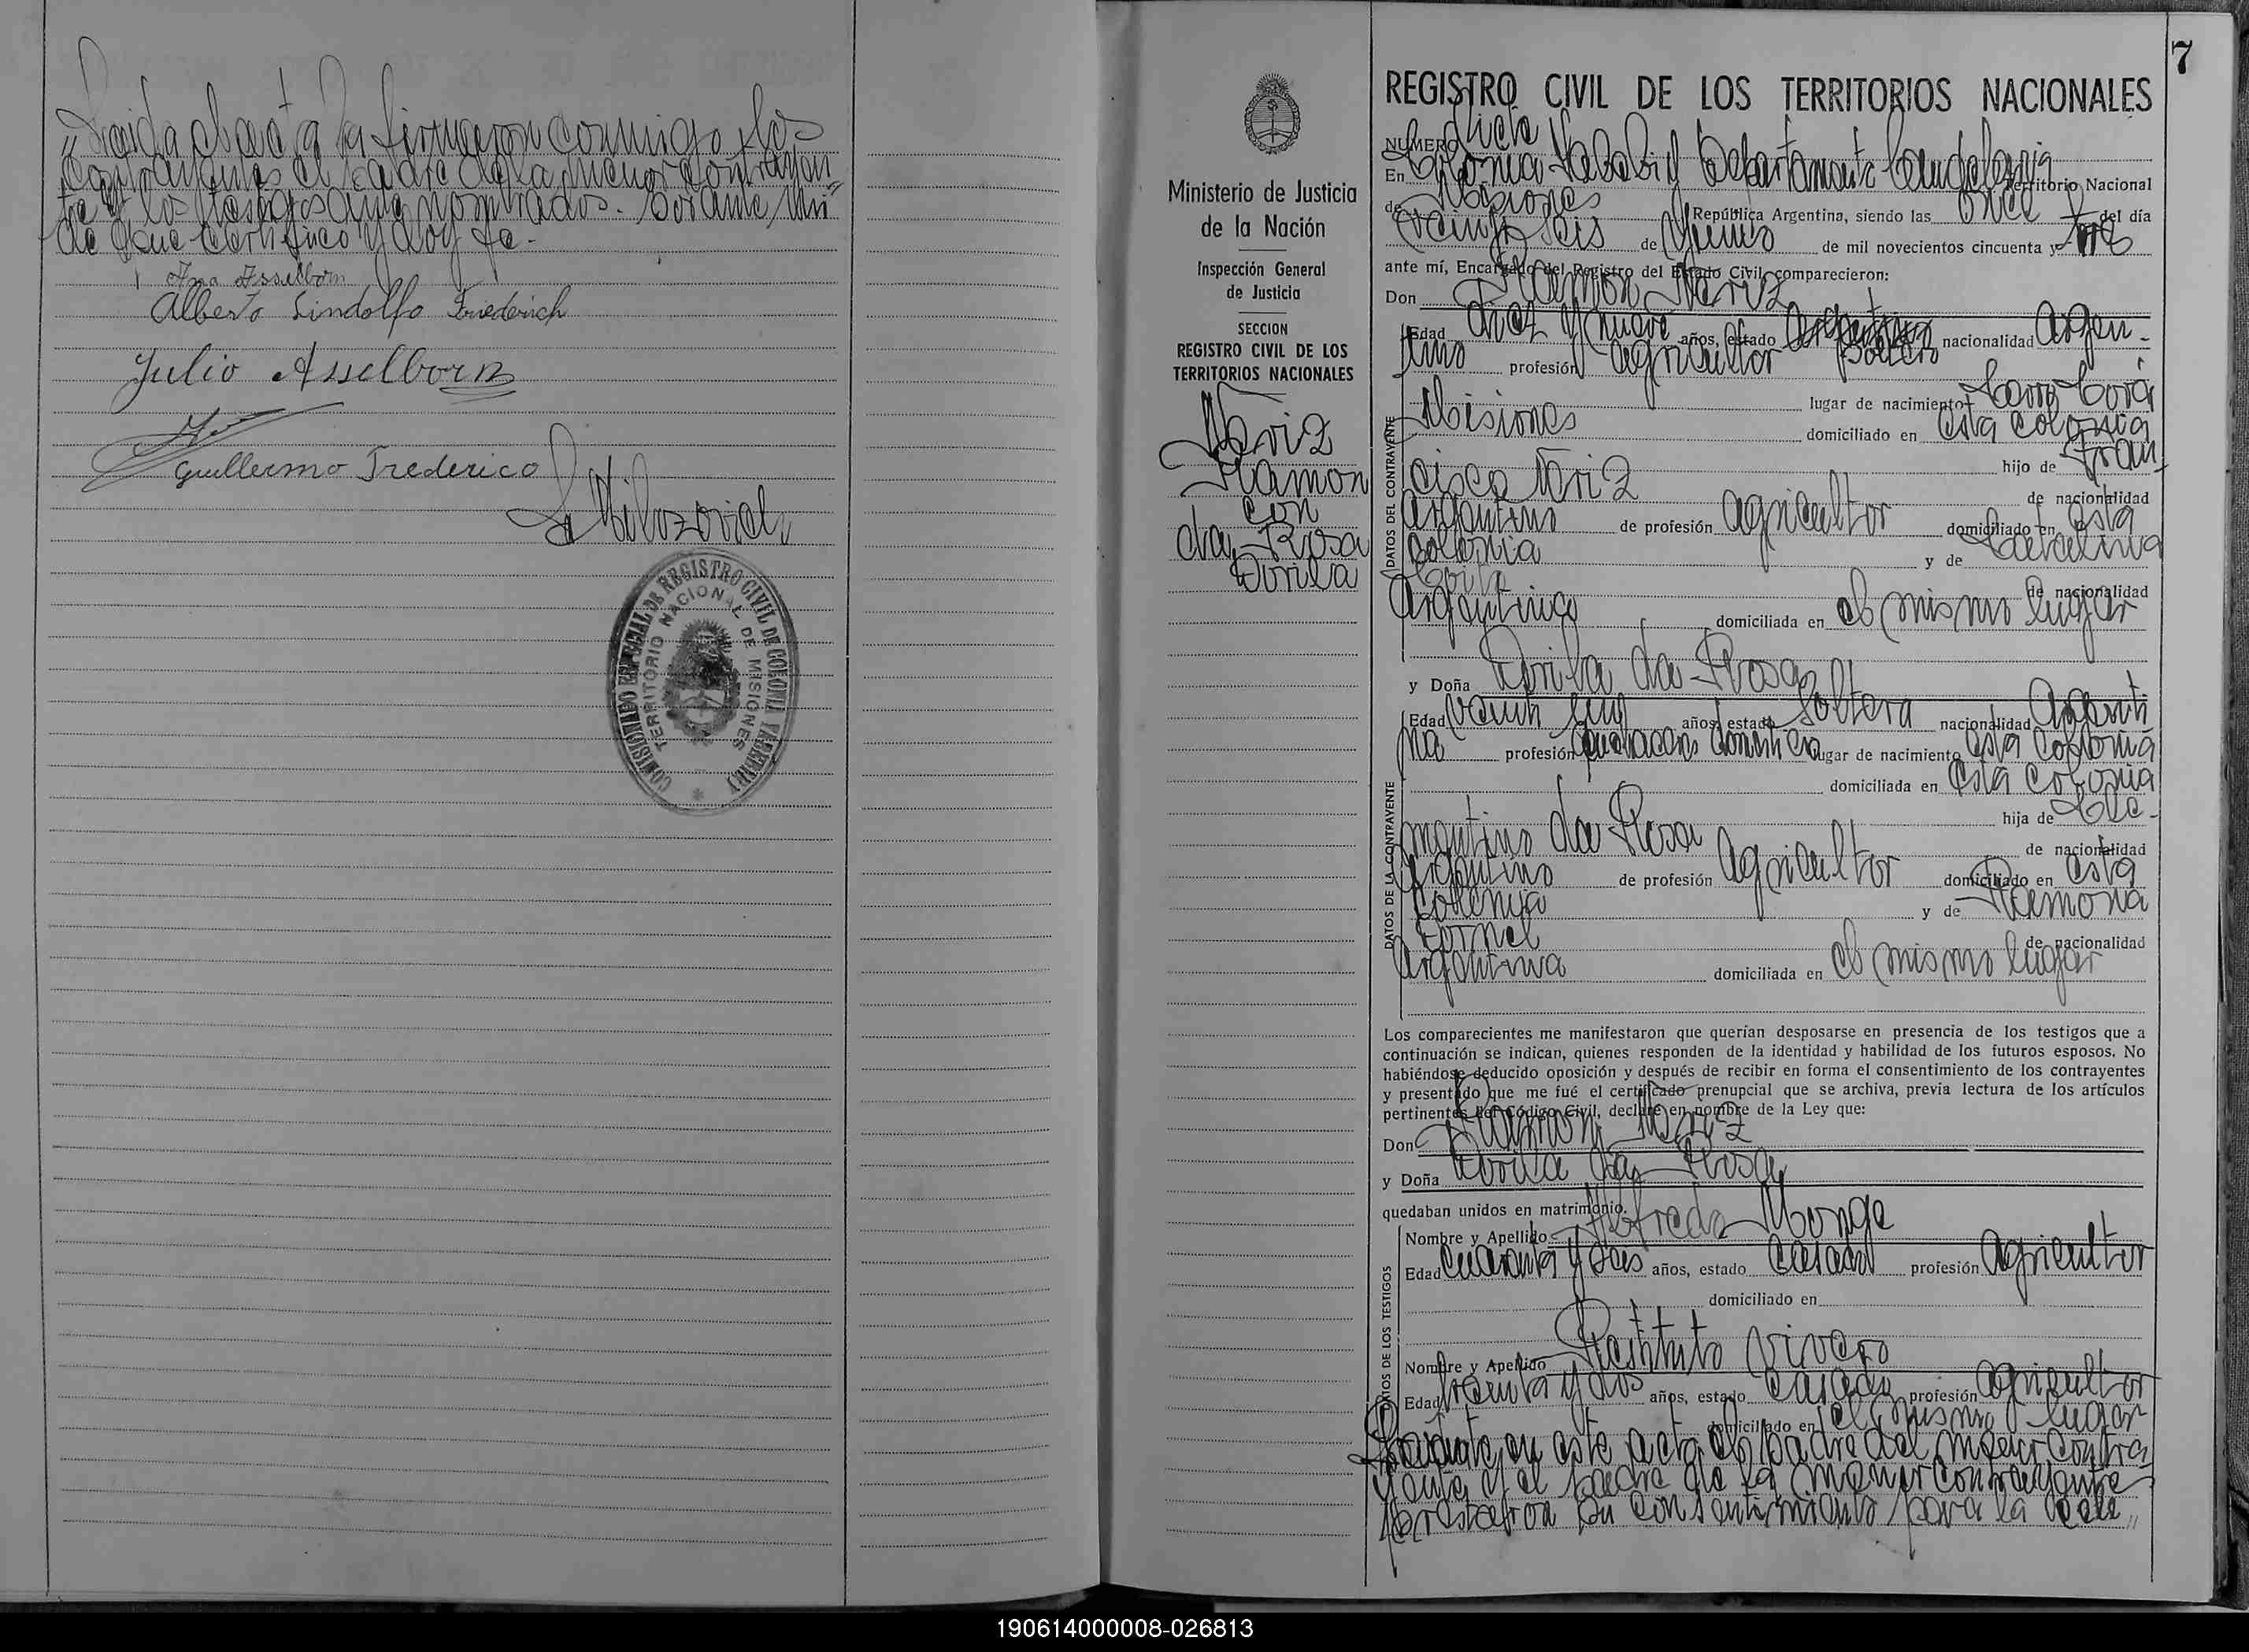 Leida el acta la firmaron conmigo, los
contrayentes el padre de la menor contrayen
te y los testigos
de que certifico y doy fe.-
Ana Asselborn
Alberto Lindolfo Friederich
Julio Asselborn
Guillermo Frederico
COMISIONADO ESPECIAL DE REGISTRO CIVIL DE COLONIA YABEBIRY
TERRITORIO NACIONAL DE MISIONES
7
Ministerio de Justicia
de la Nación
Inspección General
de Justicia
SECCION
REGISTRO CIVIL DE LOS
TERRITORIOS NACIONALES
Ramon
con
da Rosa
REGISTRO CIVIL DE LOS TERRITORIOS NACIONALES
NUMERO Siete
En Colonia Yabebiry Departamento Candelaria Territorio Nacional
de Misiones República Argentina, siendo las once del día
veinte y seis de de mil novecientos cincuenta y tres
ante mí, Encargado del Registro del Estado Civil, comparecieron:
Don Ramon
DATOS DEL CONTRAYENTE
Edad diez y nueve años, estado soltero nacionalidad Argen-
tino profesión agricultor
lugar de nacimiento Cerro Corá
Misiones domiciliado en esta colonia
hijo de Fran-
cisco de nacionalidad
Argentino de profesión agricultor domiciliado en esta
colonia y de
de nacionalidad
Argentina domiciliada en el mismo lugar
y Doña da Rosa
DATOS DE LA CONTRAYENTE
Edad años, estado soltera nacionalidad Argenti
na profesión quehaceres domésticos lugar de nacimiento esta colonia
domiciliada en esta colonia
hija de Cle-
mentino da Rosa de nacionalidad
Argentino de profesión agricultor domiciliado en esta
colonia y de Ramona
de nacionalidad
Argentina domiciliada en el mismo lugar
Los comparecientes me manifestaron que querían desposarse en presencia de los testigos que a
continuación se indican, quienes responden de la identidad y habilidad de los futuros esposos. No
habiéndose deducido oposición y después de recibir en forma el consentimiento de los contrayentes
y presentado que me fué el certificado prenupcial que se archiva, previa lectura de los artículos
pertinentes del Código Civil, declaré en nombre de la Ley que:
Don Ramon
y Doña da Rosa
quedaban unidos en matrimonio.
DATOS DE LOS TESTIGOS
Nombre y Apellido Alfredo Monge
Edad cuarenta y seis años, estado casado profesión agricultor
domiciliado en
Nombre y Apellido Restituto Vivero
Edad treinta y dos años, estado casado profesión agricultor
domiciliado en el mismo lugar
Presente en este acta el padre del menor contra
yente y el padre de la menor contrayente
prestaron su consentimiento para la cele"
190614000008-026813